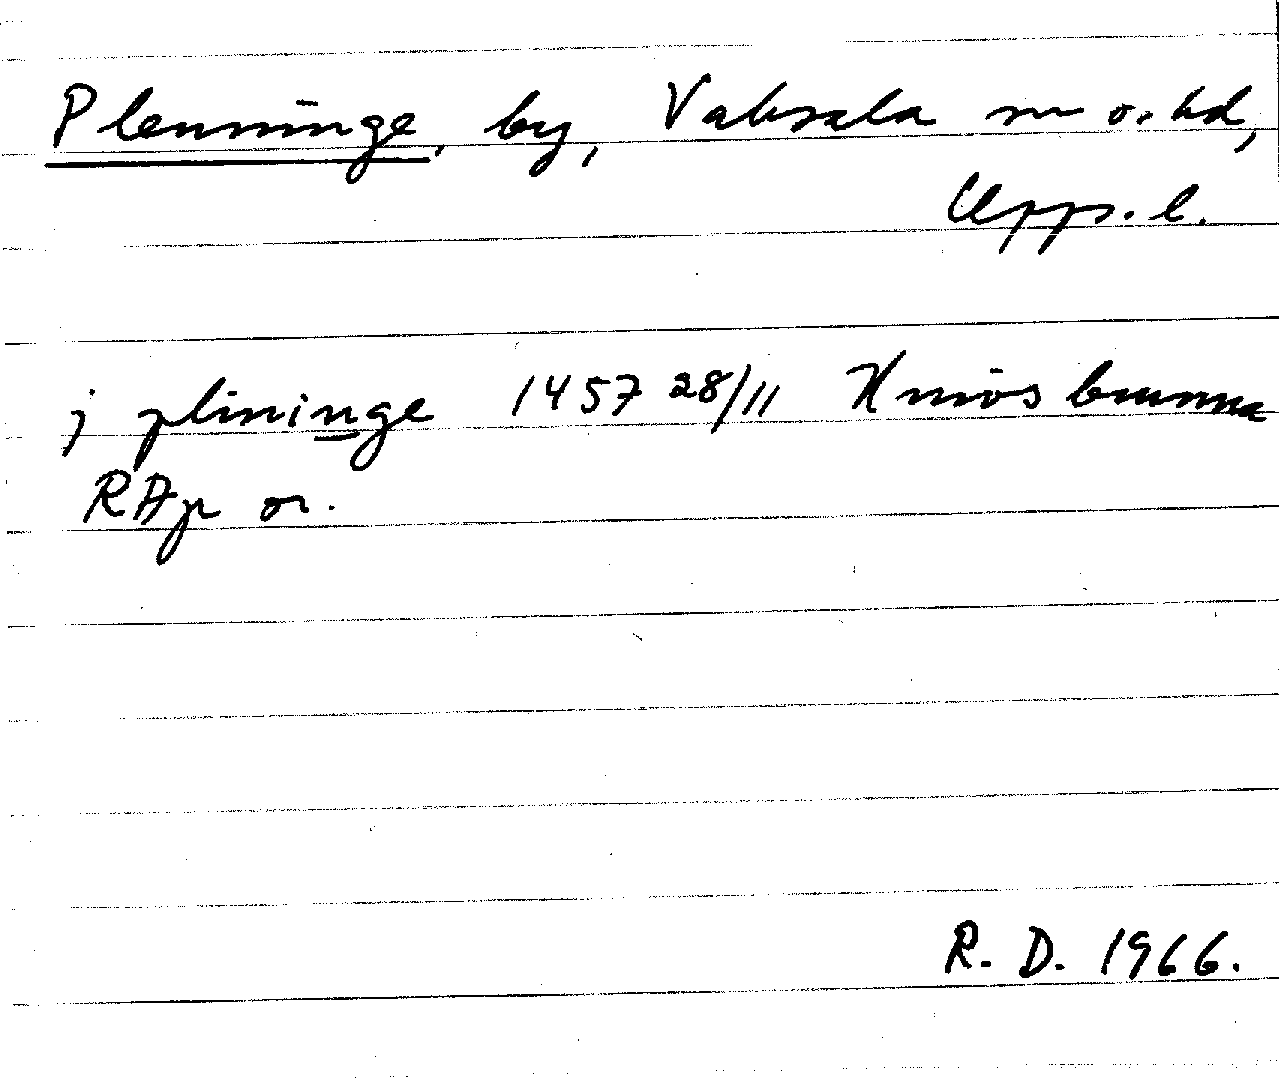 Plenninge, by, Vaksala sn o. hd,
Upps. l.
j plininge 1457 28/11 Knivsbrunna
RAp or.
R. D. 1966.